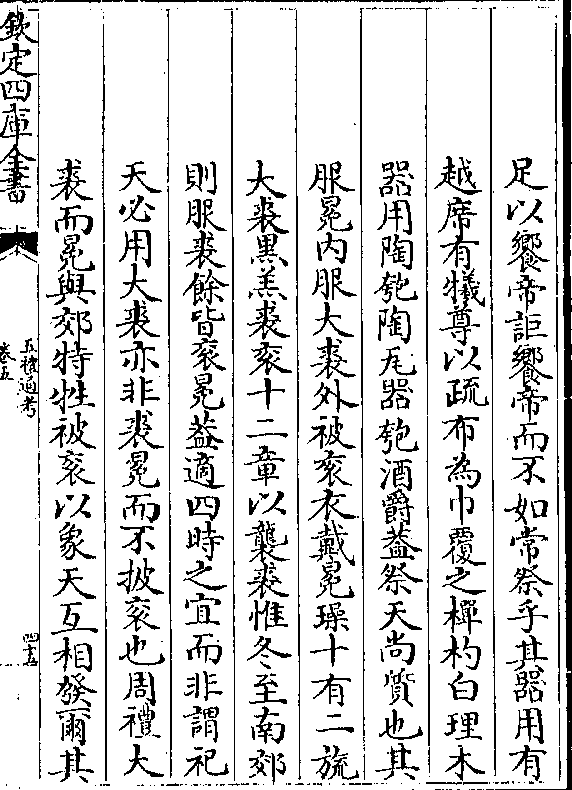 足以饗帝詎饗帝而不如常祭乎其器用有
越席有犧尊以疏布為巾覆之樿杓白理木
器用陶匏陶瓦器匏酒爵葢祭天尚質也其
服冕内服大裘外被衮衣戴冕璪十有二旒
大裘黒羔裘衮十二章以襲裘惟冬至南郊
則服裘餘皆衮冕葢適四時之宜而非謂祀
天必用大裘亦非裘冕而不披衮也周禮大
裘而冕與郊特牲被衮以象天互相發爾其
欽定四庫全書
五禮通考
卷五